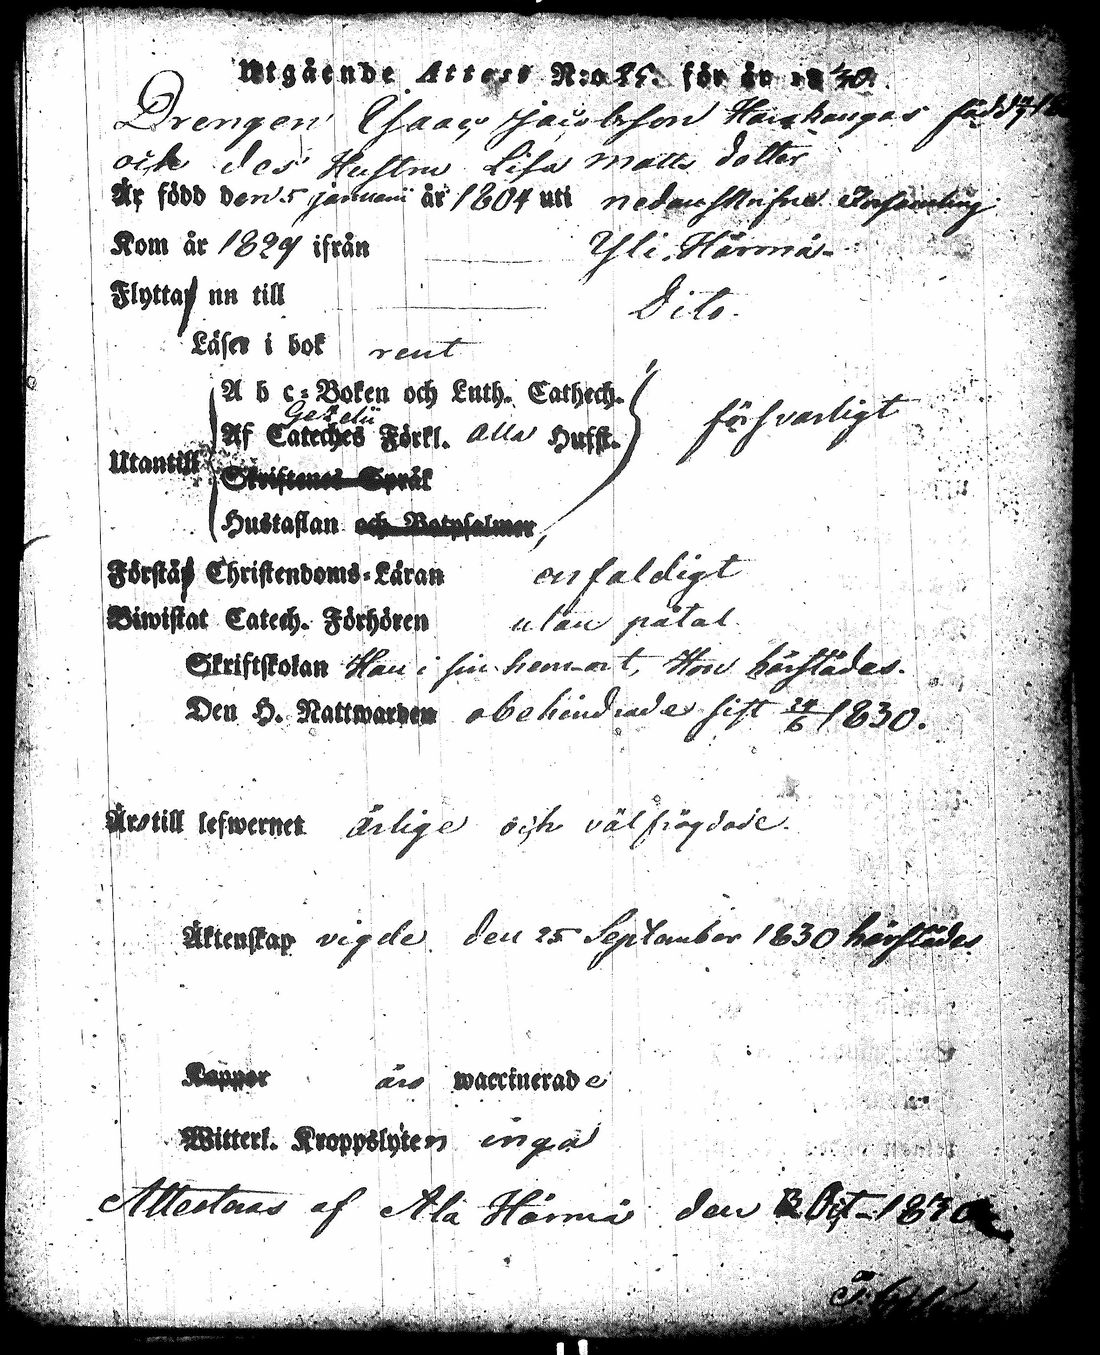 Utgående Attest N:o 25. för år 1830.
Drengen Isaac Jacobsson Hanhangas född
och des Hustru Lisa Matts dotter
Är född den 5 januarii år 1804 uti nedanskrifne Församling
Kom år 1829 ifrån Yli Härmä
Flytta nu till Dito.
Läser i bok rent
A b c-Boken och Luth. Cathech.
Gezelii
Af Cateches Förkl. Alla Husst. försvarligt
Utantill
Skriftenes Språk
Hustaflan och Botpsalmer
Förstå Christendoms-Läran enfaldigt
Biwistat Catech. Förhören utan påtal
Skriftskolan Han i sin hemort, Hon härstädes.
Den H. Nattwarden obehindrade sist 24/6 1830.
Äro till lefwernet ärlige och välfrägdade.
Äktenskap vigde den 25 September 1830 härstädes
Koppor äro waccinerade
Witterl. Kroppslyten inga
Attesteras af Ala Härmä den Oct. 1830